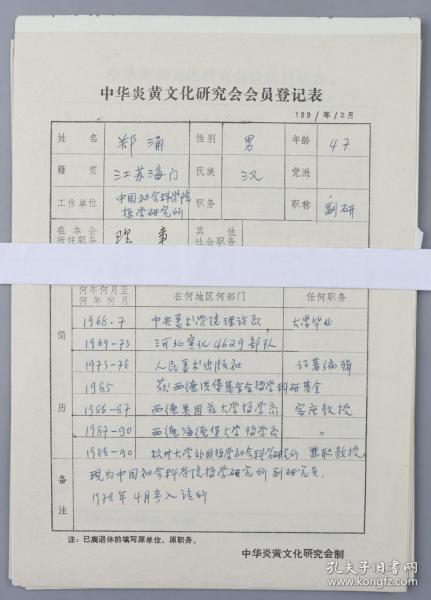 中华炎黄文化研究会会员登记表
1991年12月
姓名 郑涌 性别 男 年龄 47
籍贯 江苏海门 民族 汉 党派
工作单位 中国社会科学院哲学研究所 职务 职称 副研
在本会所任职务 理事 其他社会职务
简历
何年何月至何年何月 在何地区何部门 任何职务
1968.7 中央美术学院理论系 大学毕业
1969-73 河北宣化4629部队
1973-78 人民美术出版社 论著编辑
1985 获西德洪堡基金会哲学科研基金
1986-87 西德美因兹大学哲学系 客座教授
1987-90 西德海德堡大学哲学系 〃
1988-90 杭州大学外国哲学社会科学研究所 兼职教授
备注
现为中国社会科学院哲学研究所副研究员.
1978年4月考入该所
注：已离退休的填写原单位、原职务。
中华炎黄文化研究会制
孔夫子旧书网
www.kongfz.com